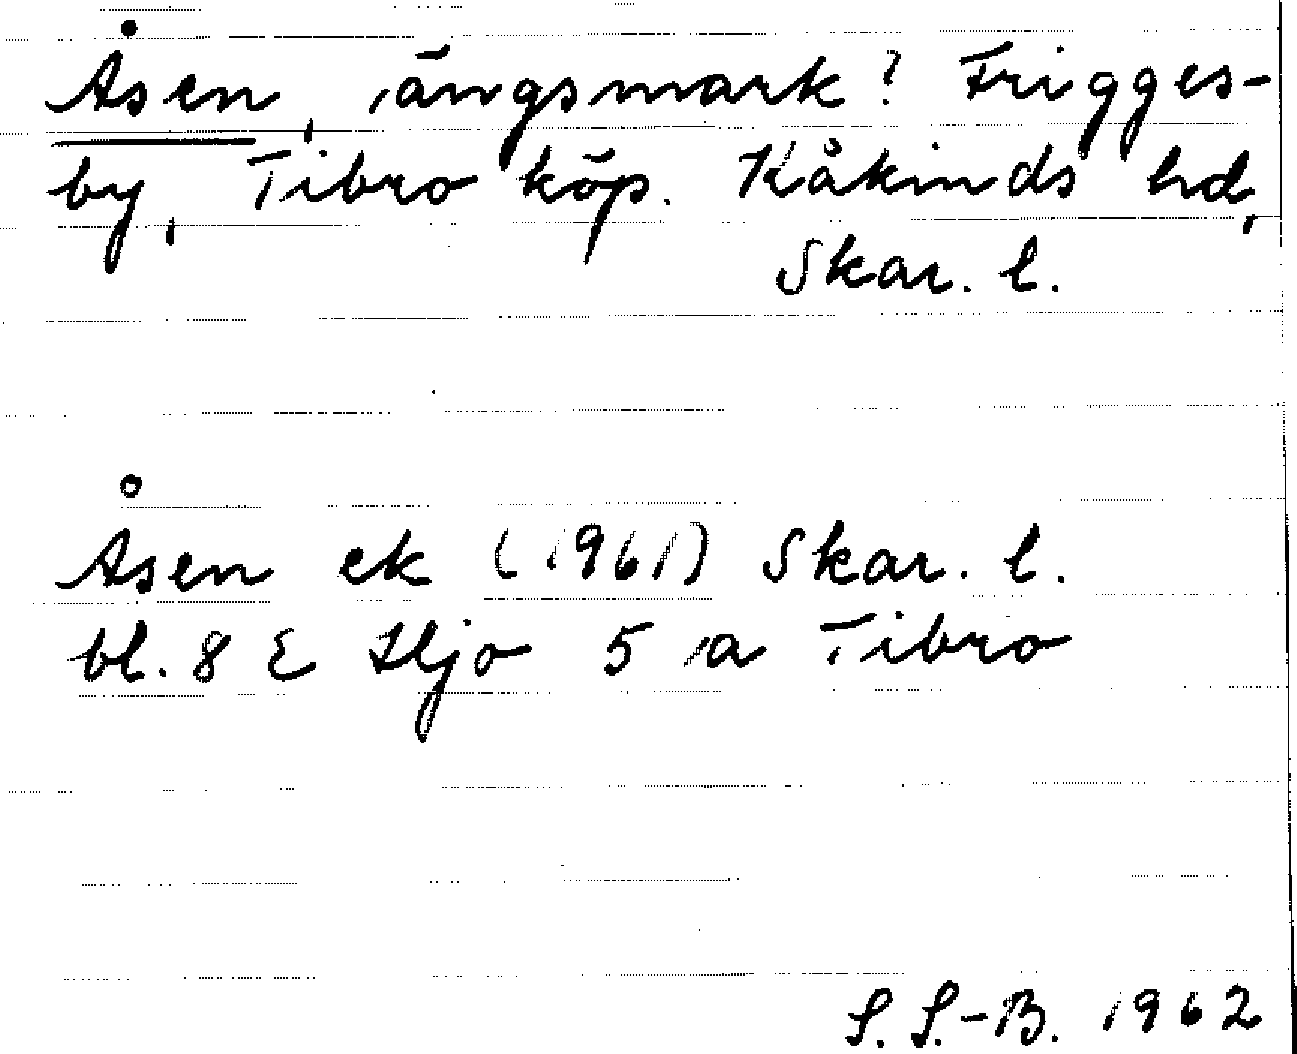 Åsen, ängsmark? Frigges-
by, Tibro köp. Kåkinds hd,
Skar. l.
Åsen ek (1961) Skar. l.
bl. 8 E Hjo 5 a Tibro
S. S.-B. 1962